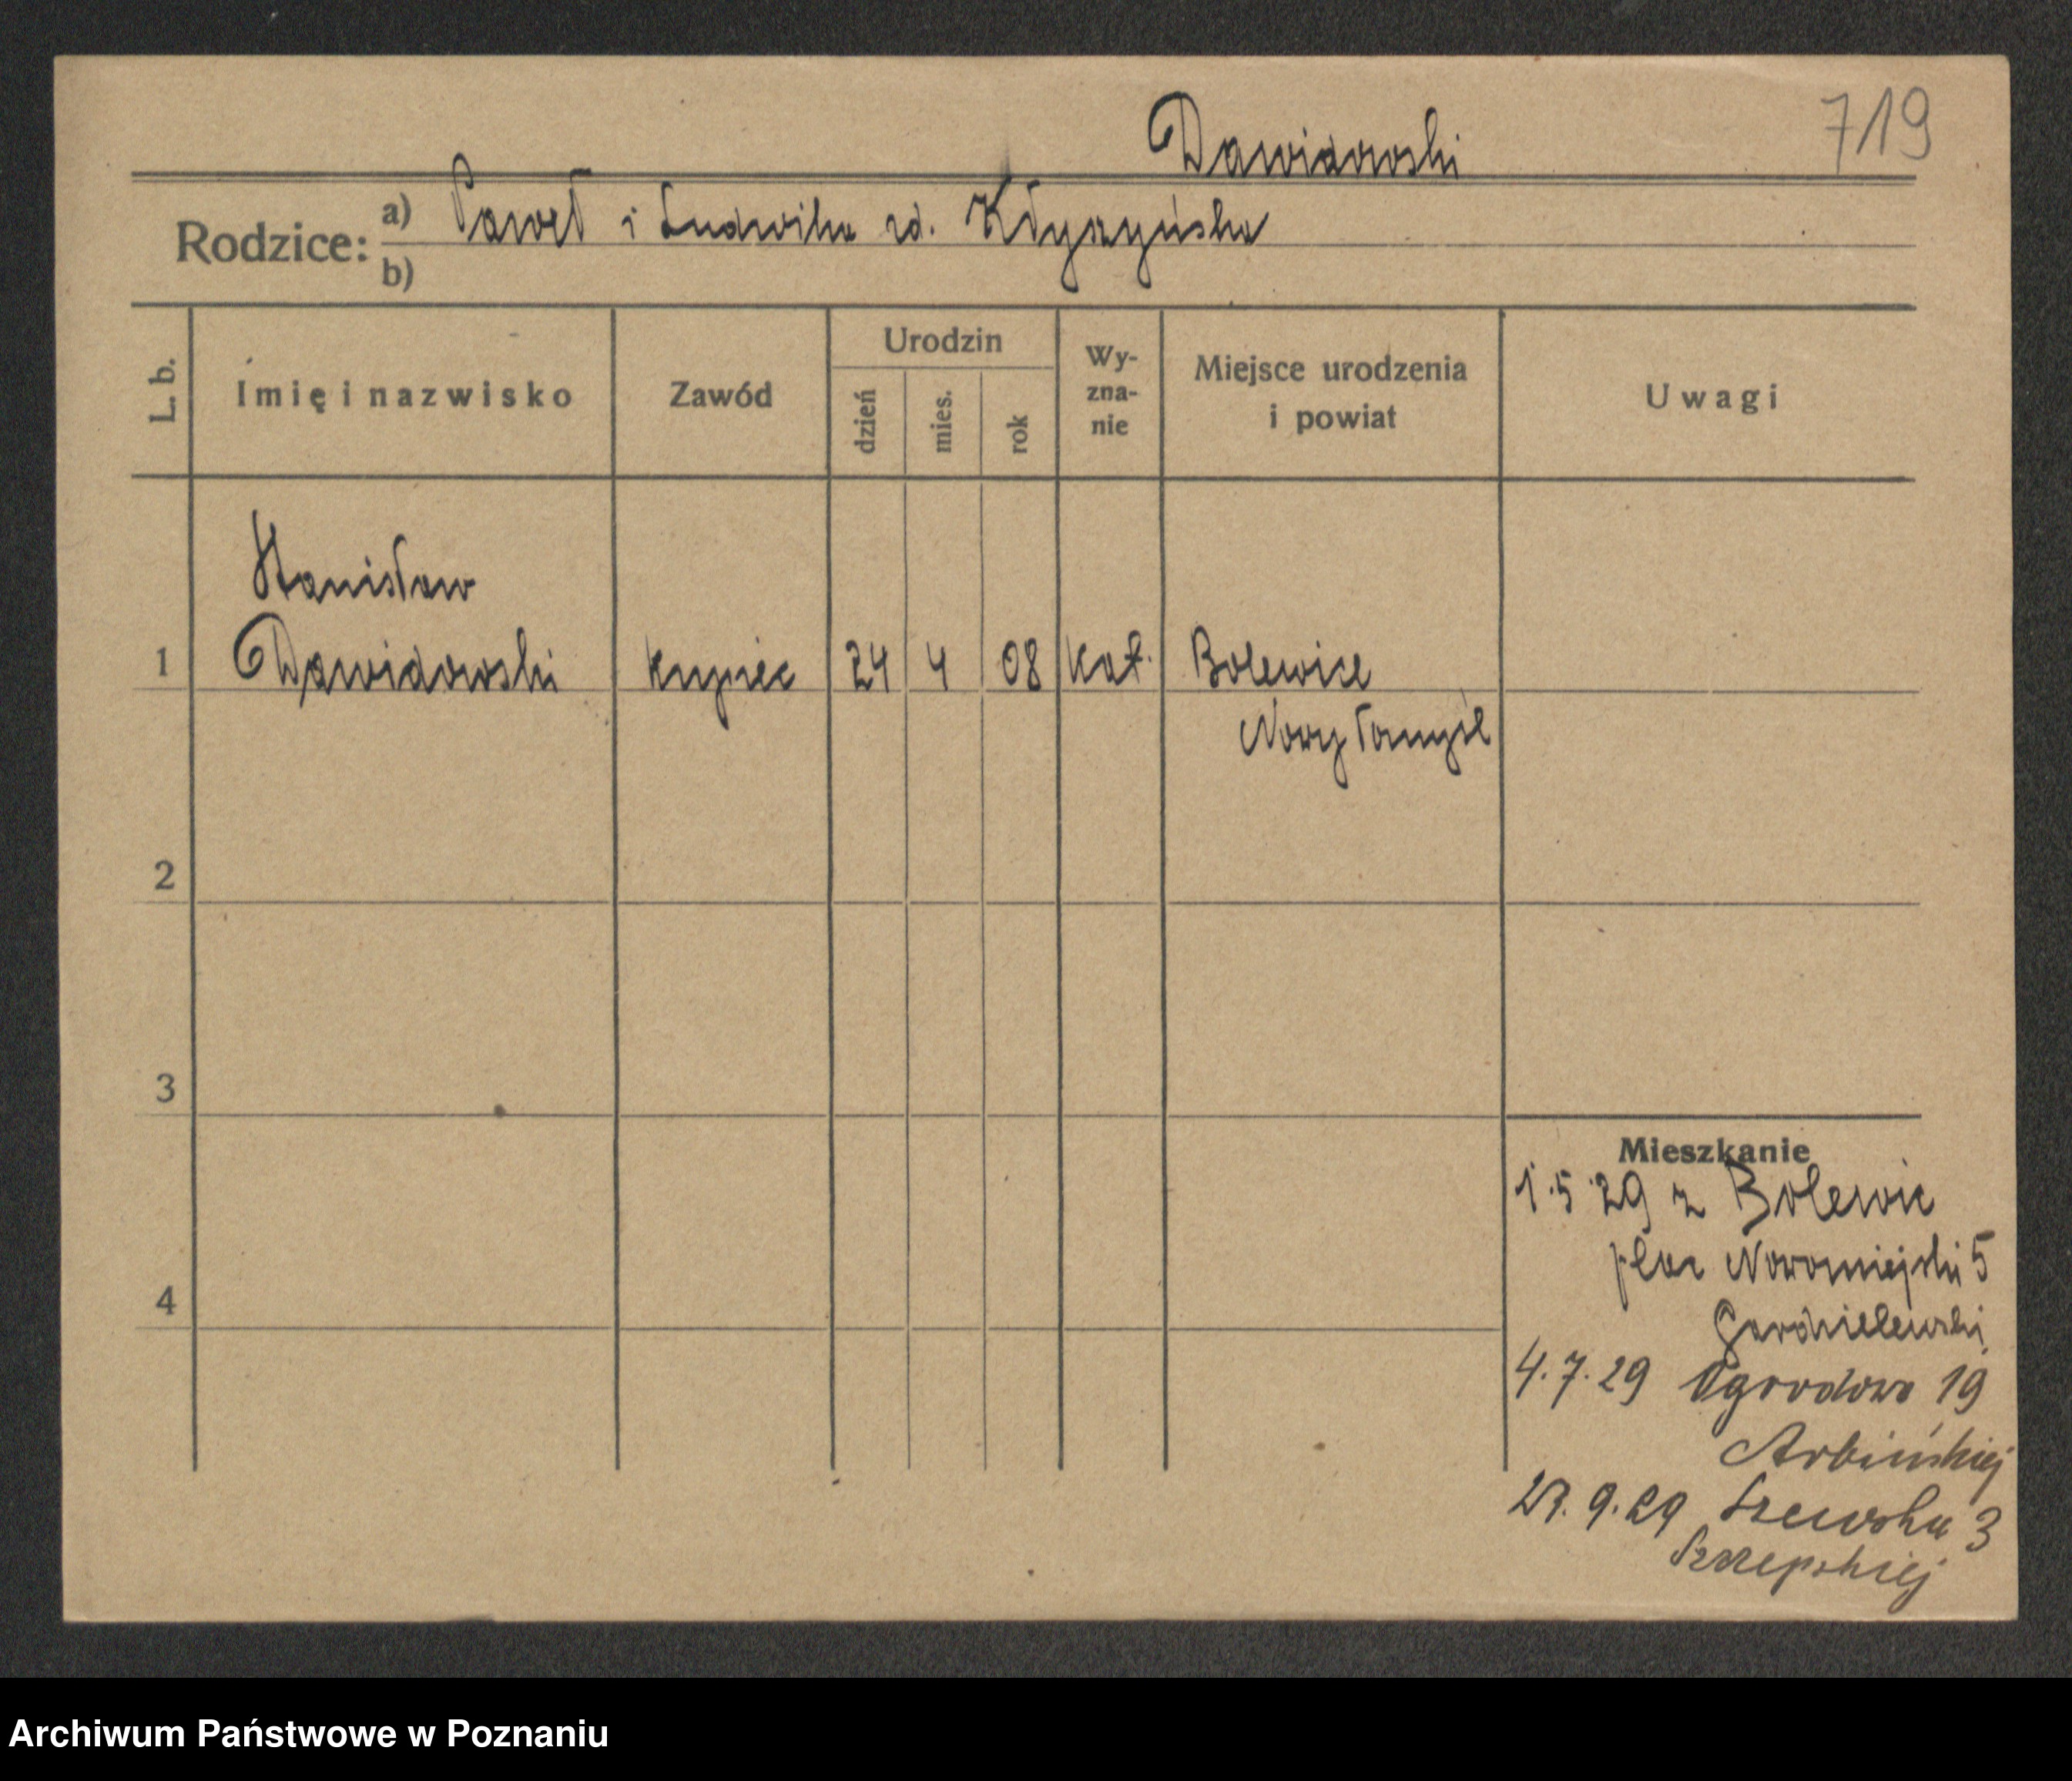 719
Dawidowski
Rodzice: a) Paweł i Ludwika zd. Kłyszyńska
b)
L. b. Imię i nazwisko Zawód Urodzin dzień mies. rok Wyznanie Miejsce urodzenia i powiat Uwagi
Stanisław
1 Dawidowski kupiec 24 4 08 kat. Bolewice
Nowy Tomyśl
2
3
Mieszkanie
1.5.29 z Bolewic
plac Nowomiejski 5
4
4.7.29 Ogrodowa 19
Arbińskiej
27.9.29 Szewska 3
Archiwum Państwowe w Poznaniu